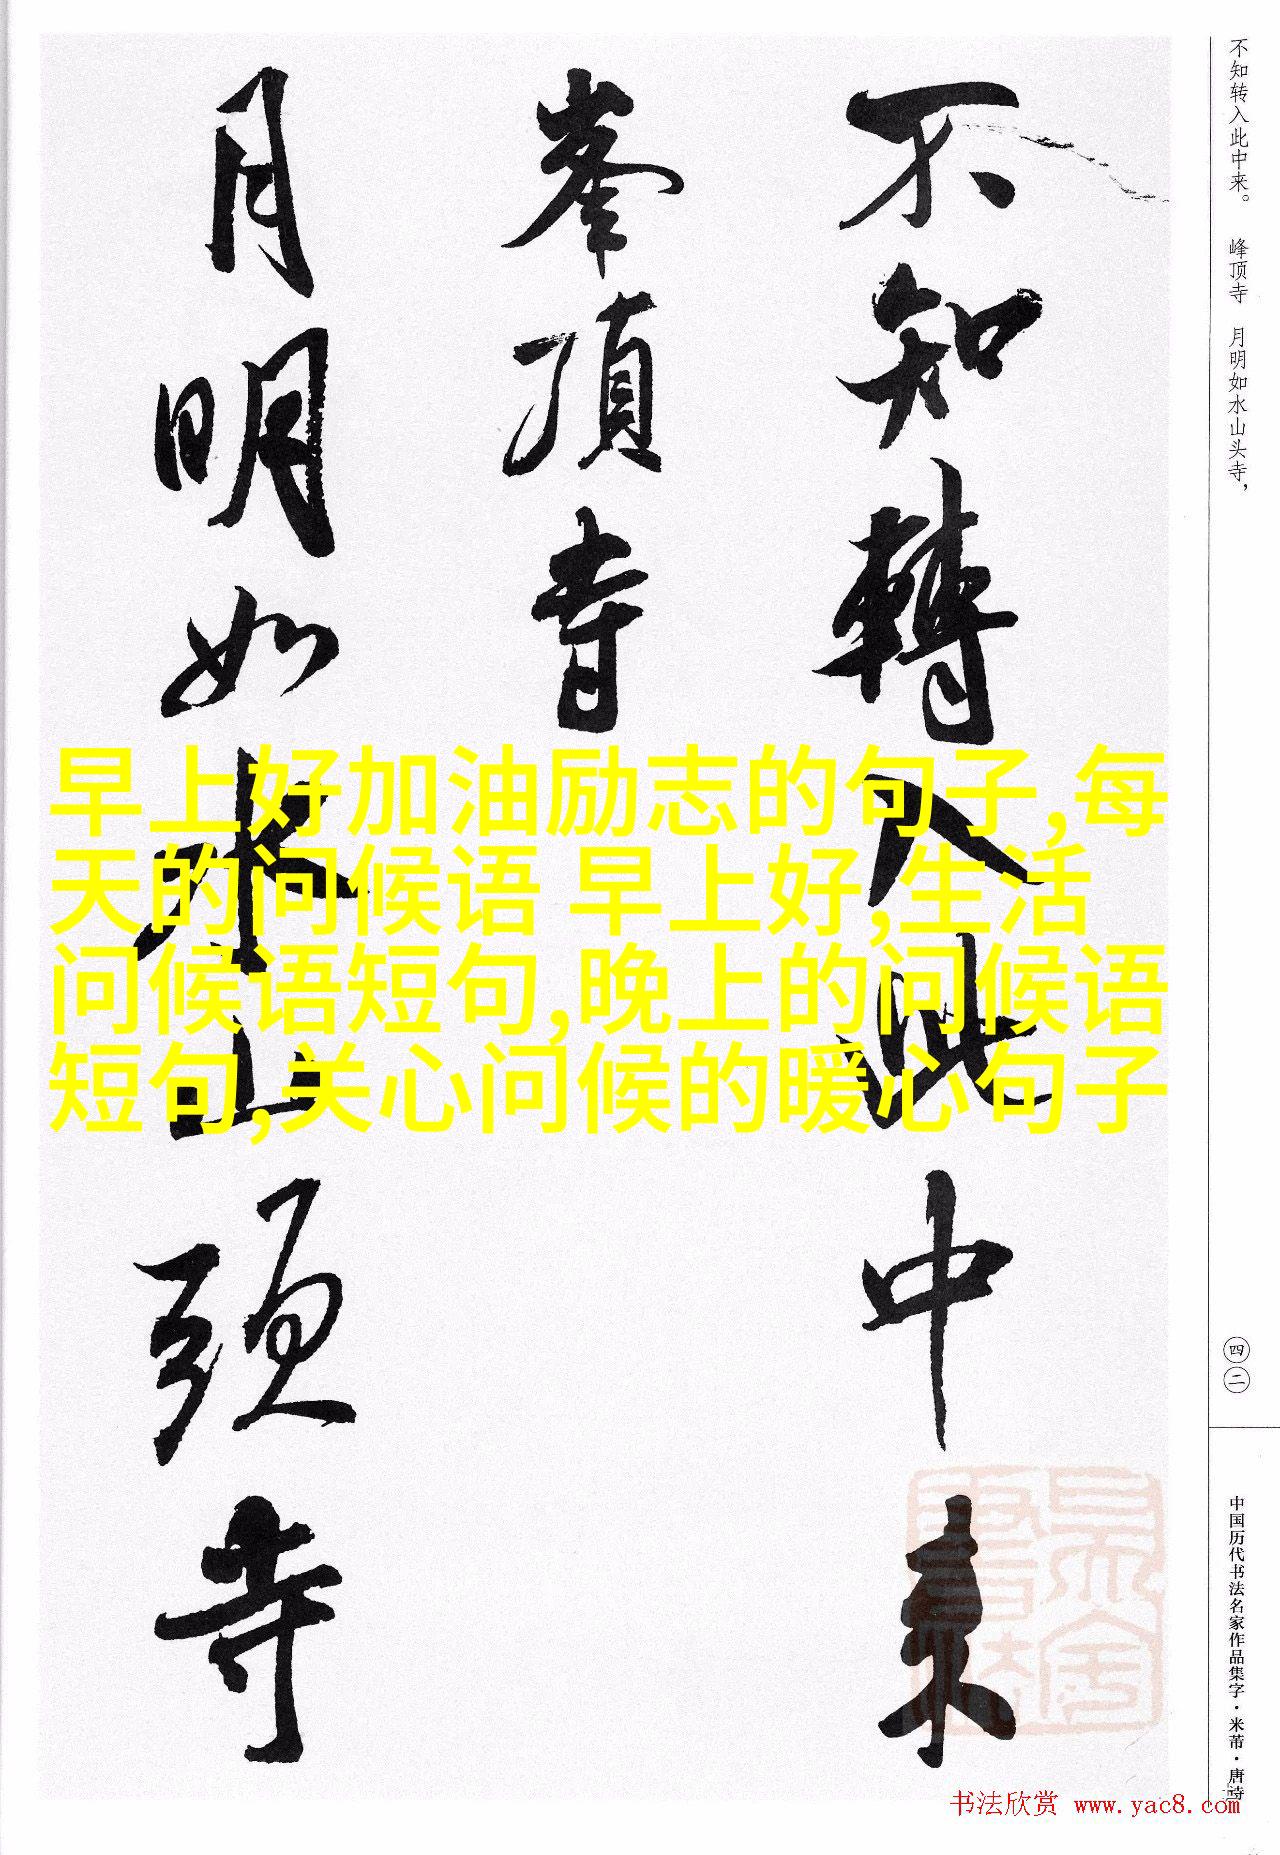 不知转入此中来。 峰顶寺 月明如水山头寺，
不知轉入此中来
峯頂寺
月明如水山頭寺
早上好加油励志的句子,每
天的问候语 早上好,生活
问候语短句,晚上的问候语
短句,关心问候的暖心句子
四二
中国历代书法名家作品集字·米芾·唐诗
书法欣赏 www.yac8.com